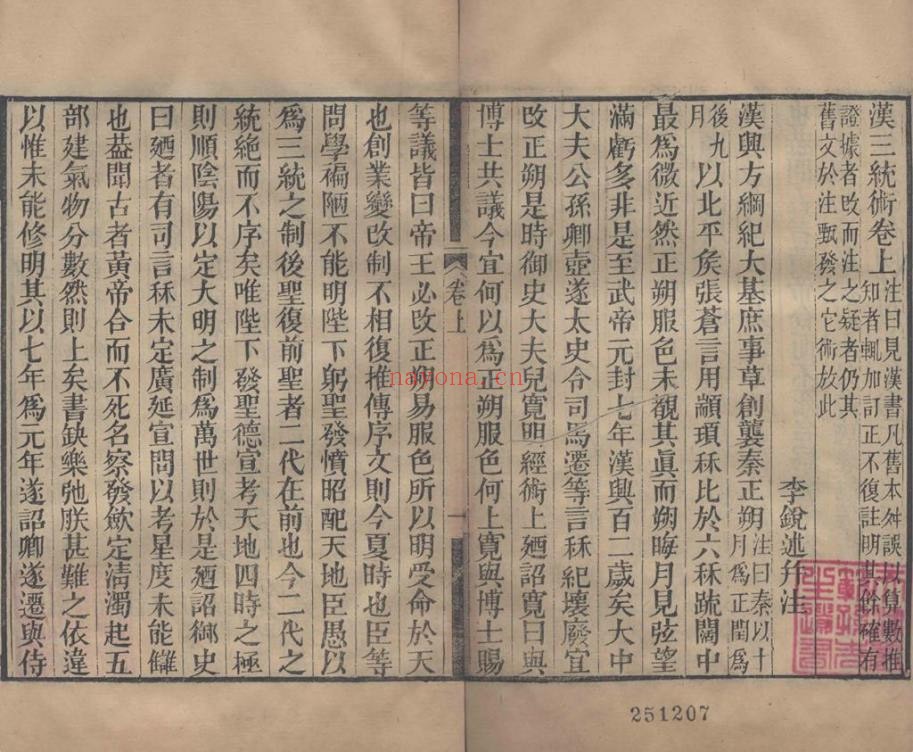 漢三統術卷上 注曰見漢書凡舊本舛誤以算數推
知者輒加訂正不復註明其餘確有
證據者改而注之疑者仍其
舊文於注甄發之它術放此
李銳述幷注
漢興方綱紀大基庶事草創襲秦正朔 注曰秦以十
月爲正閏爲
後九
月 以北平矦張蒼言用顓頊秝比於六秝疏闊中
最爲微近然正朔服色未覩其眞而朔晦月見弦望
滿虧多非是至武帝元封七年漢興百二歲矣大中
大夫公孫卿壺遂太史令司馬遷等言秝紀壞廢宜
改正朔是時御史大夫兒寬明經術上廼詔寬曰與
博士共議今宜何以爲正朔服色何上寬與博士賜
卷上 一
等議皆曰帝王必改正朔易服色所以明受命於天
也創業變改制不相復推傳序文則今夏時也臣等
問學褊陋不能明陛下躬聖發憤昭配天地臣愚以
爲三統之制後聖復前聖者二代在前也今二代之
統絶而不序矣唯陛下發聖德宣考天地四時之極
則順陰陽以定大明之制爲萬世則於是廼詔御史
曰廼者有司言秝未定廣延宣問以考星度未能讎
也葢聞古者黃帝合而不死名察發歛定淸濁起五
部建氣物分數然則上矣書缺樂弛朕甚難之依違
以惟未能修明其以七年爲元年遂詔卿遂遷與侍
nayona.cn
251207